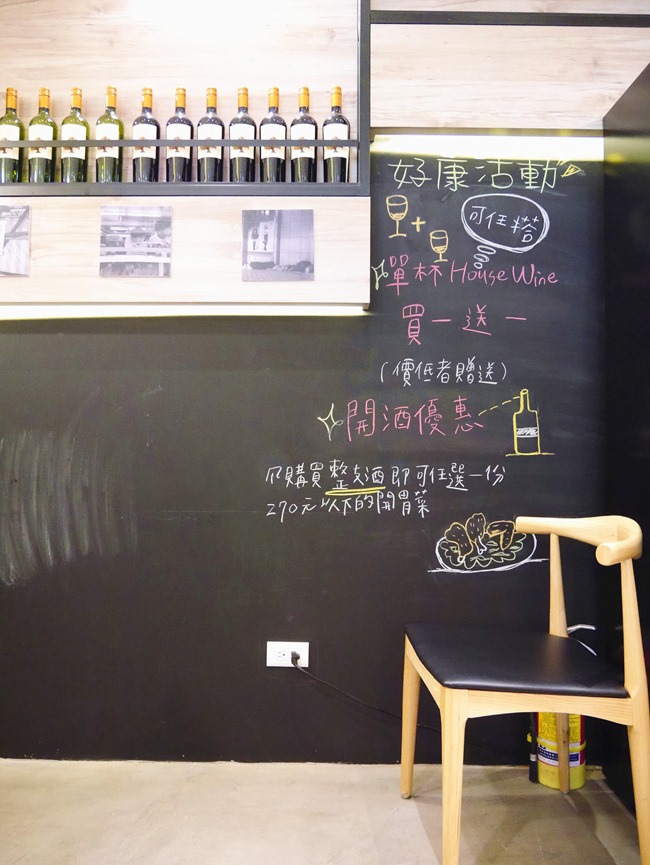 好康活動
可任搭
單杯 House Wine
買一送一
(價低者贈送)
開酒優惠
凡購買整支酒即可任選一份
270元以下的開胃菜